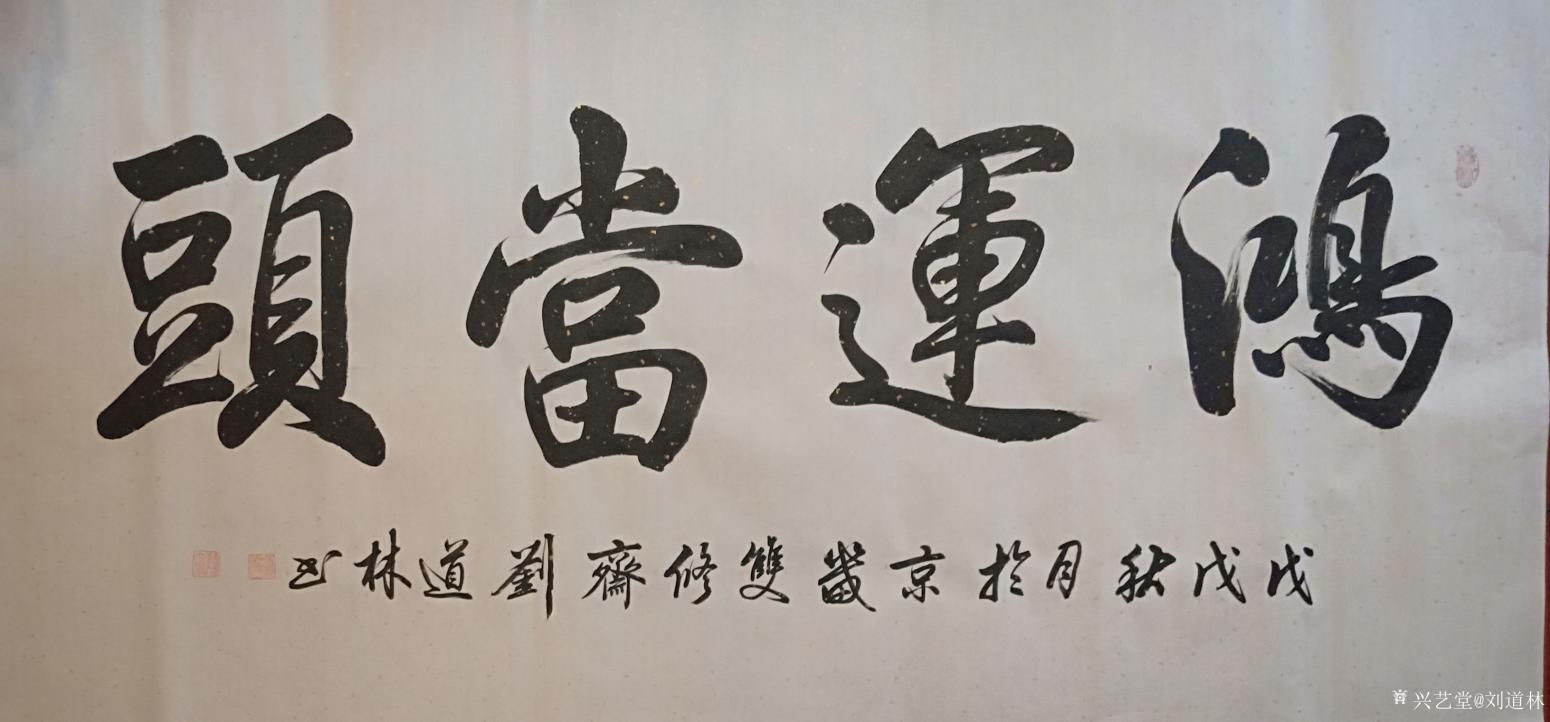 鴻運當頭
戊戌秋月於京畿雙修齋劉道林书
兴艺堂@刘道林